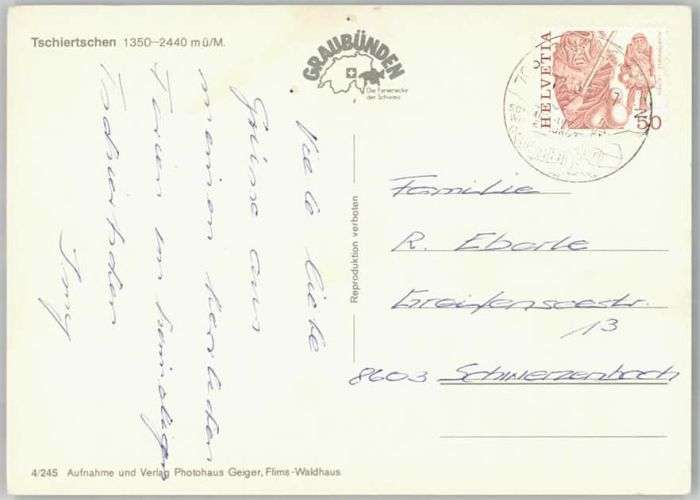 Tschiertschen 1350–2440 m ü/M.
GRAUBÜNDEN
Die Ferienecke
der Schweiz
HELVETIA
50
Viele liebe
Grüsse aus
meinen
Ferien im heimeligen
Tschiertschen
Reproduktion verboten
Familie
R. Eberle
Greifenseestr.
13
8603 Schwerzenbach
4/245 Aufnahme und Verlag Photohaus Geiger, Flims-Waldhaus